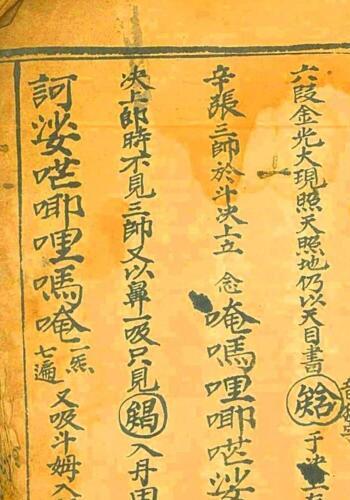 六段金光大現照天照地仍以天目書
于決
辛張三師於斗决上立 念唵嗎哩唧𠷈娑
决上卽時不見三師又以鼻一吸只見
入丹田
訶娑𠷈唧哩嗎唵二炁七遍又吸斗姆入